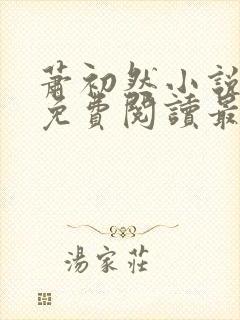 蕭初然小說
免費閱讀最
湯家莊